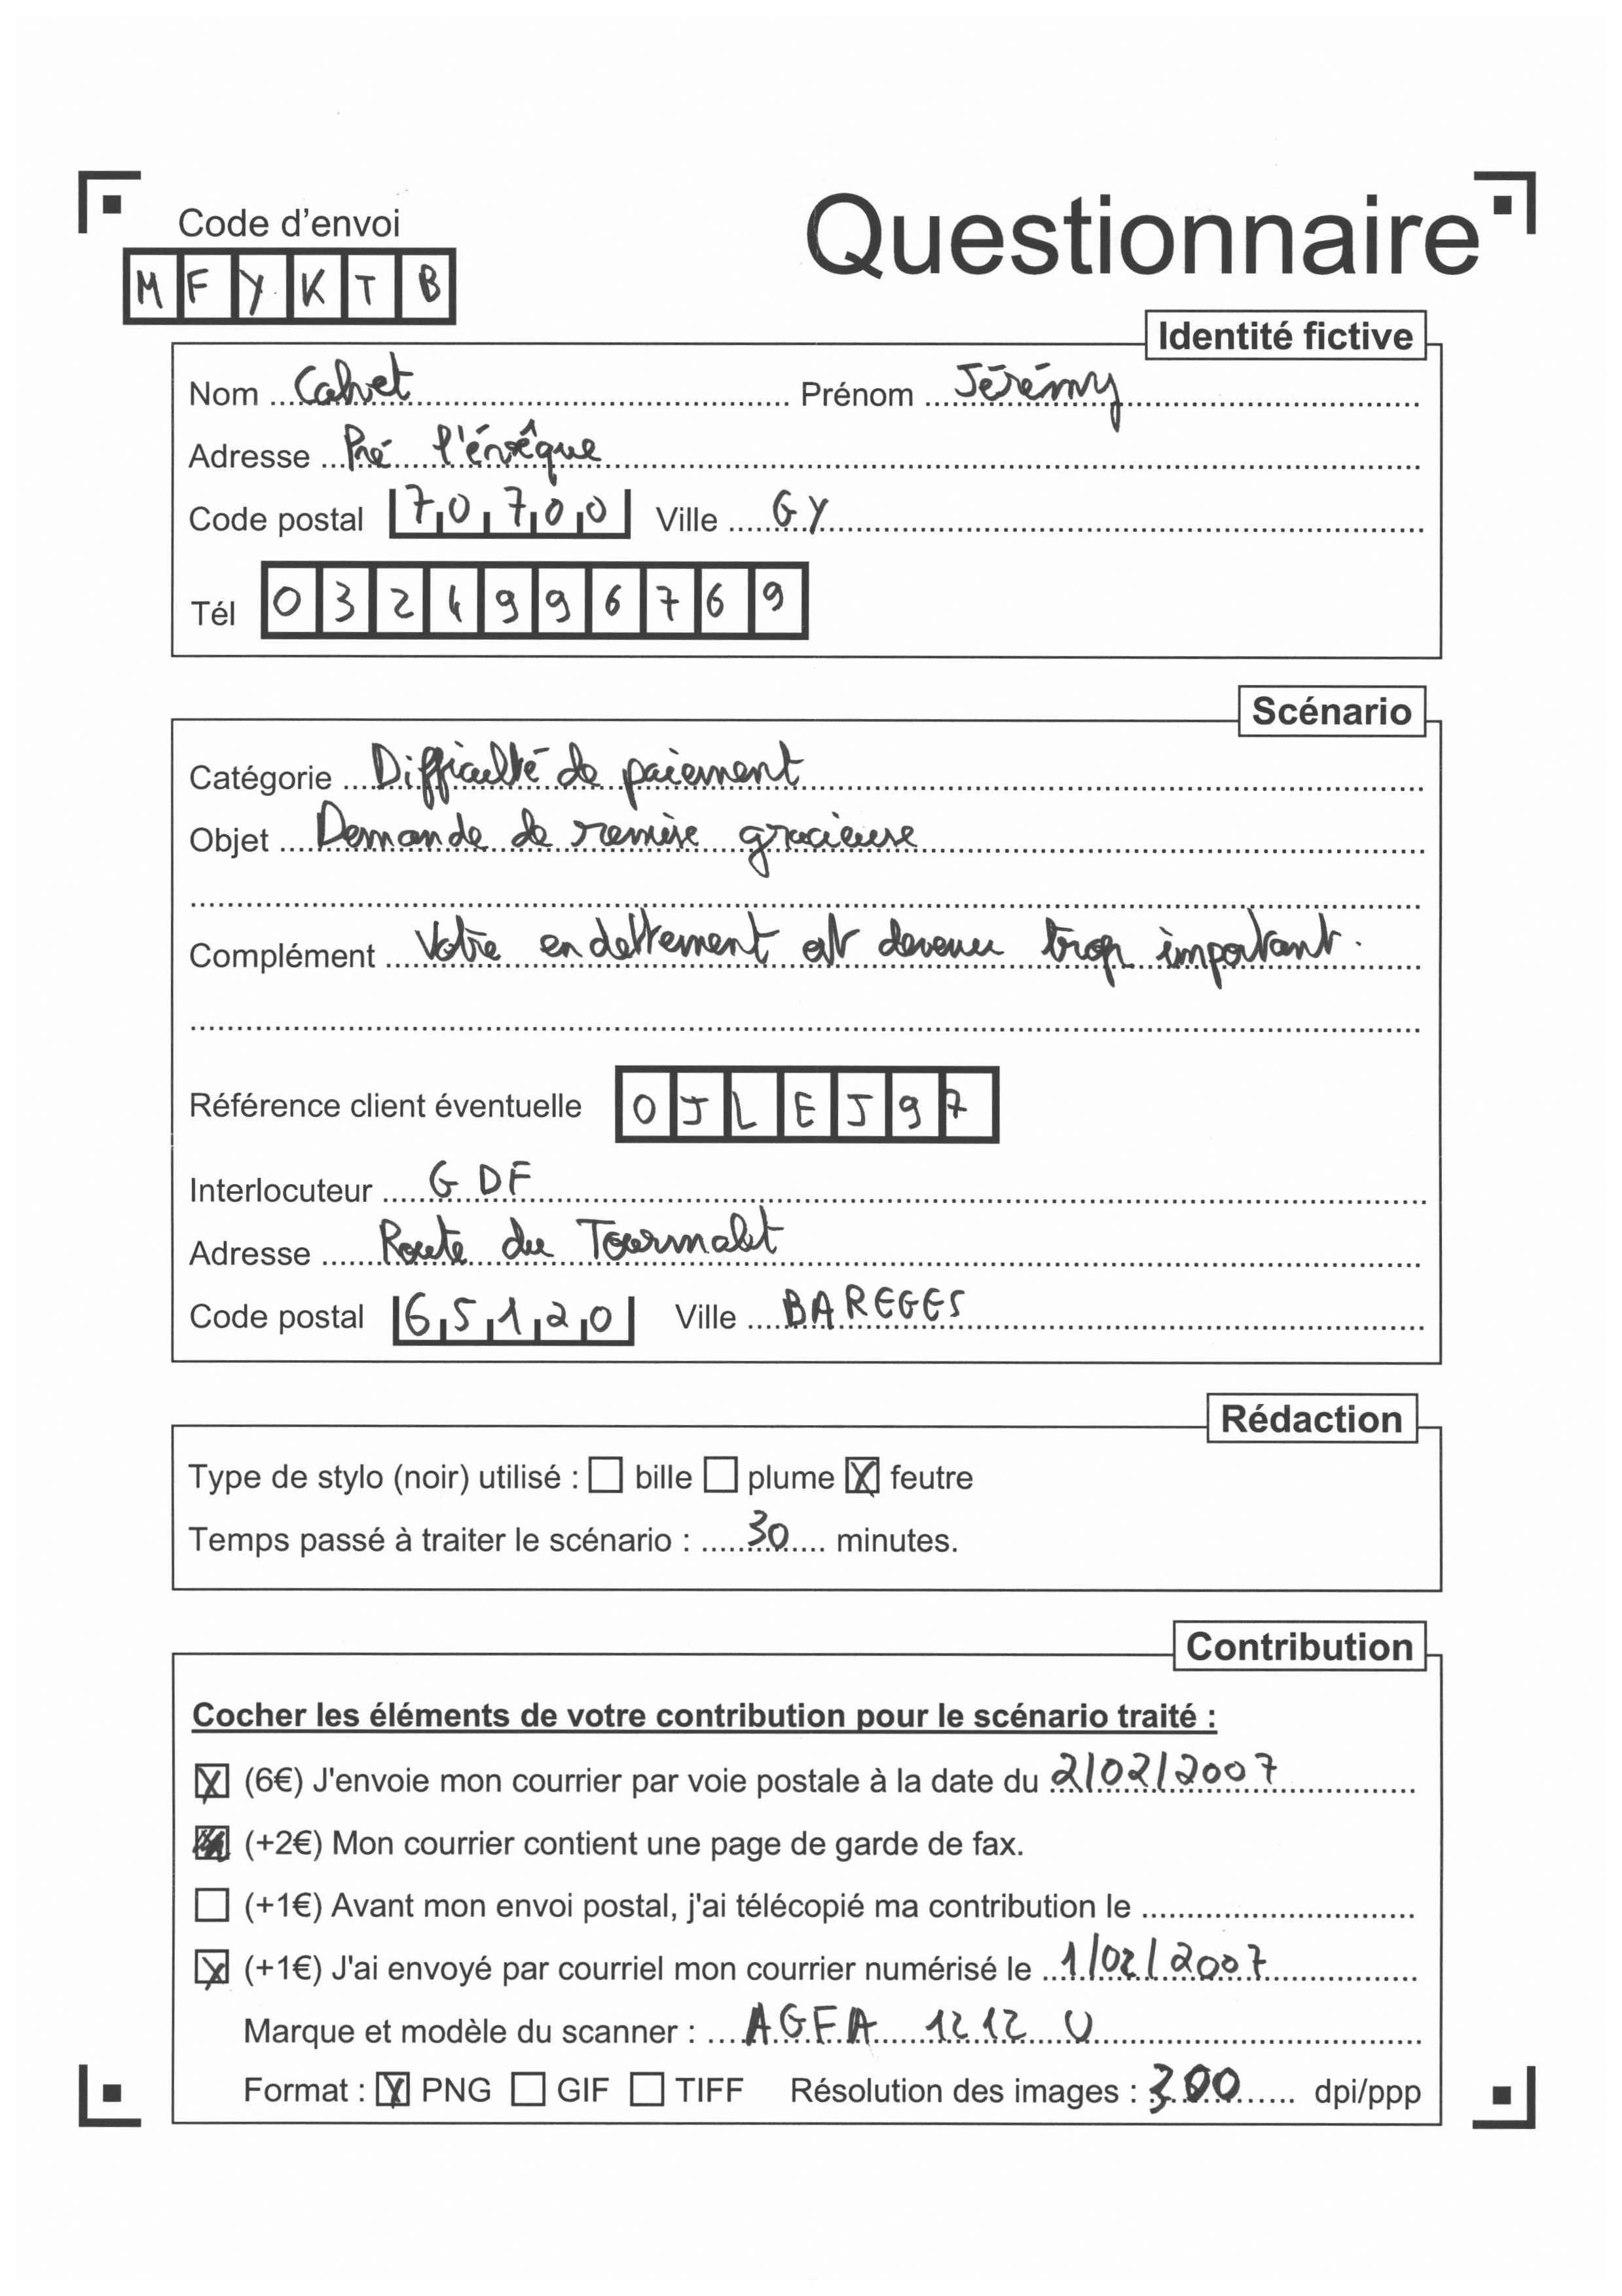 Questionnaire
Code d'envoi
M F Y K T B
Identité fictive
Nom Calvet Prénom Jérémy
Adresse Pré l'évêque
Code postal 70700 Ville GY
Tél 0324996769
Scénario
Catégorie Difficulté de paiement
Objet Demande de remise gracieuse
Complément Votre endettement est devenu trop important.
Référence client éventuelle OJLEJ97
Interlocuteur GDF
Adresse Route du Tourmalet
Code postal 65120 Ville BAREGES
Rédaction
Type de stylo (noir) utilisé : bille plume X feutre
Temps passé à traiter le scénario : 30 minutes.
Contribution
Cocher les éléments de votre contribution pour le scénario traité :
X (6€) J'envoie mon courrier par voie postale à la date du 2/02/2007
(+2€) Mon courrier contient une page de garde de fax.
(+1€) Avant mon envoi postal, j'ai télécopié ma contribution le
X (+1€) J'ai envoyé par courriel mon courrier numérisé le 1/02/2007
Marque et modèle du scanner : AGFA 1212 U
Format : X PNG GIF TIFF Résolution des images : 300 dpi/ppp